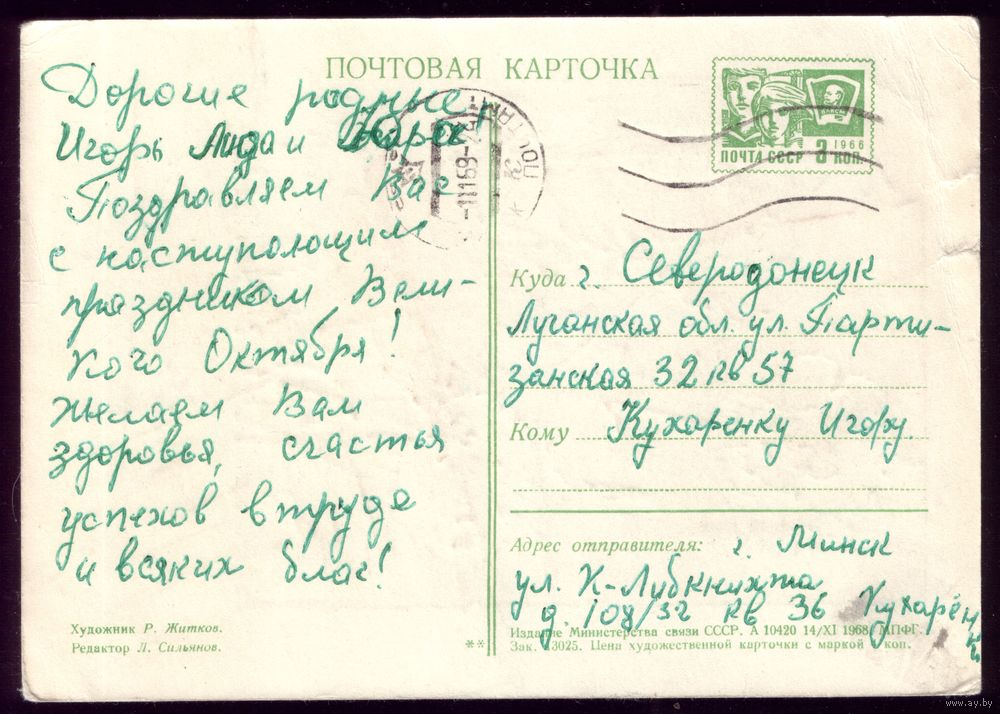 ПОЧТОВАЯ КАРТОЧКА
Дорогие родные!
Игорь Лида и
Поздравляем Вас
с наступающим
праздником Вели-
кого Октября!
Желаем Вам
здоровья, счастья
успехов в труде
и всяких благ!
Художник Р. Житков.
Редактор Л. Сильянов.
**
1966
ПОЧТА СССР 3 КОП.
ПОЧТАМТ
-11169-
Куда г. Северодонецк
Луганская обл. ул. Парти-
занская 32 кв 57
Кому Кухаренку Игорю.
Адрес отправителя: г. Минск
ул. К-Либкнихта
д. 108/32 кв 36 Кухарен
ки
Издание Министерства связи СССР. А 10420 14/XI 1968. МПФГ.
Зак. 13025. Цена художественной карточки с маркой коп.
www.ay.by